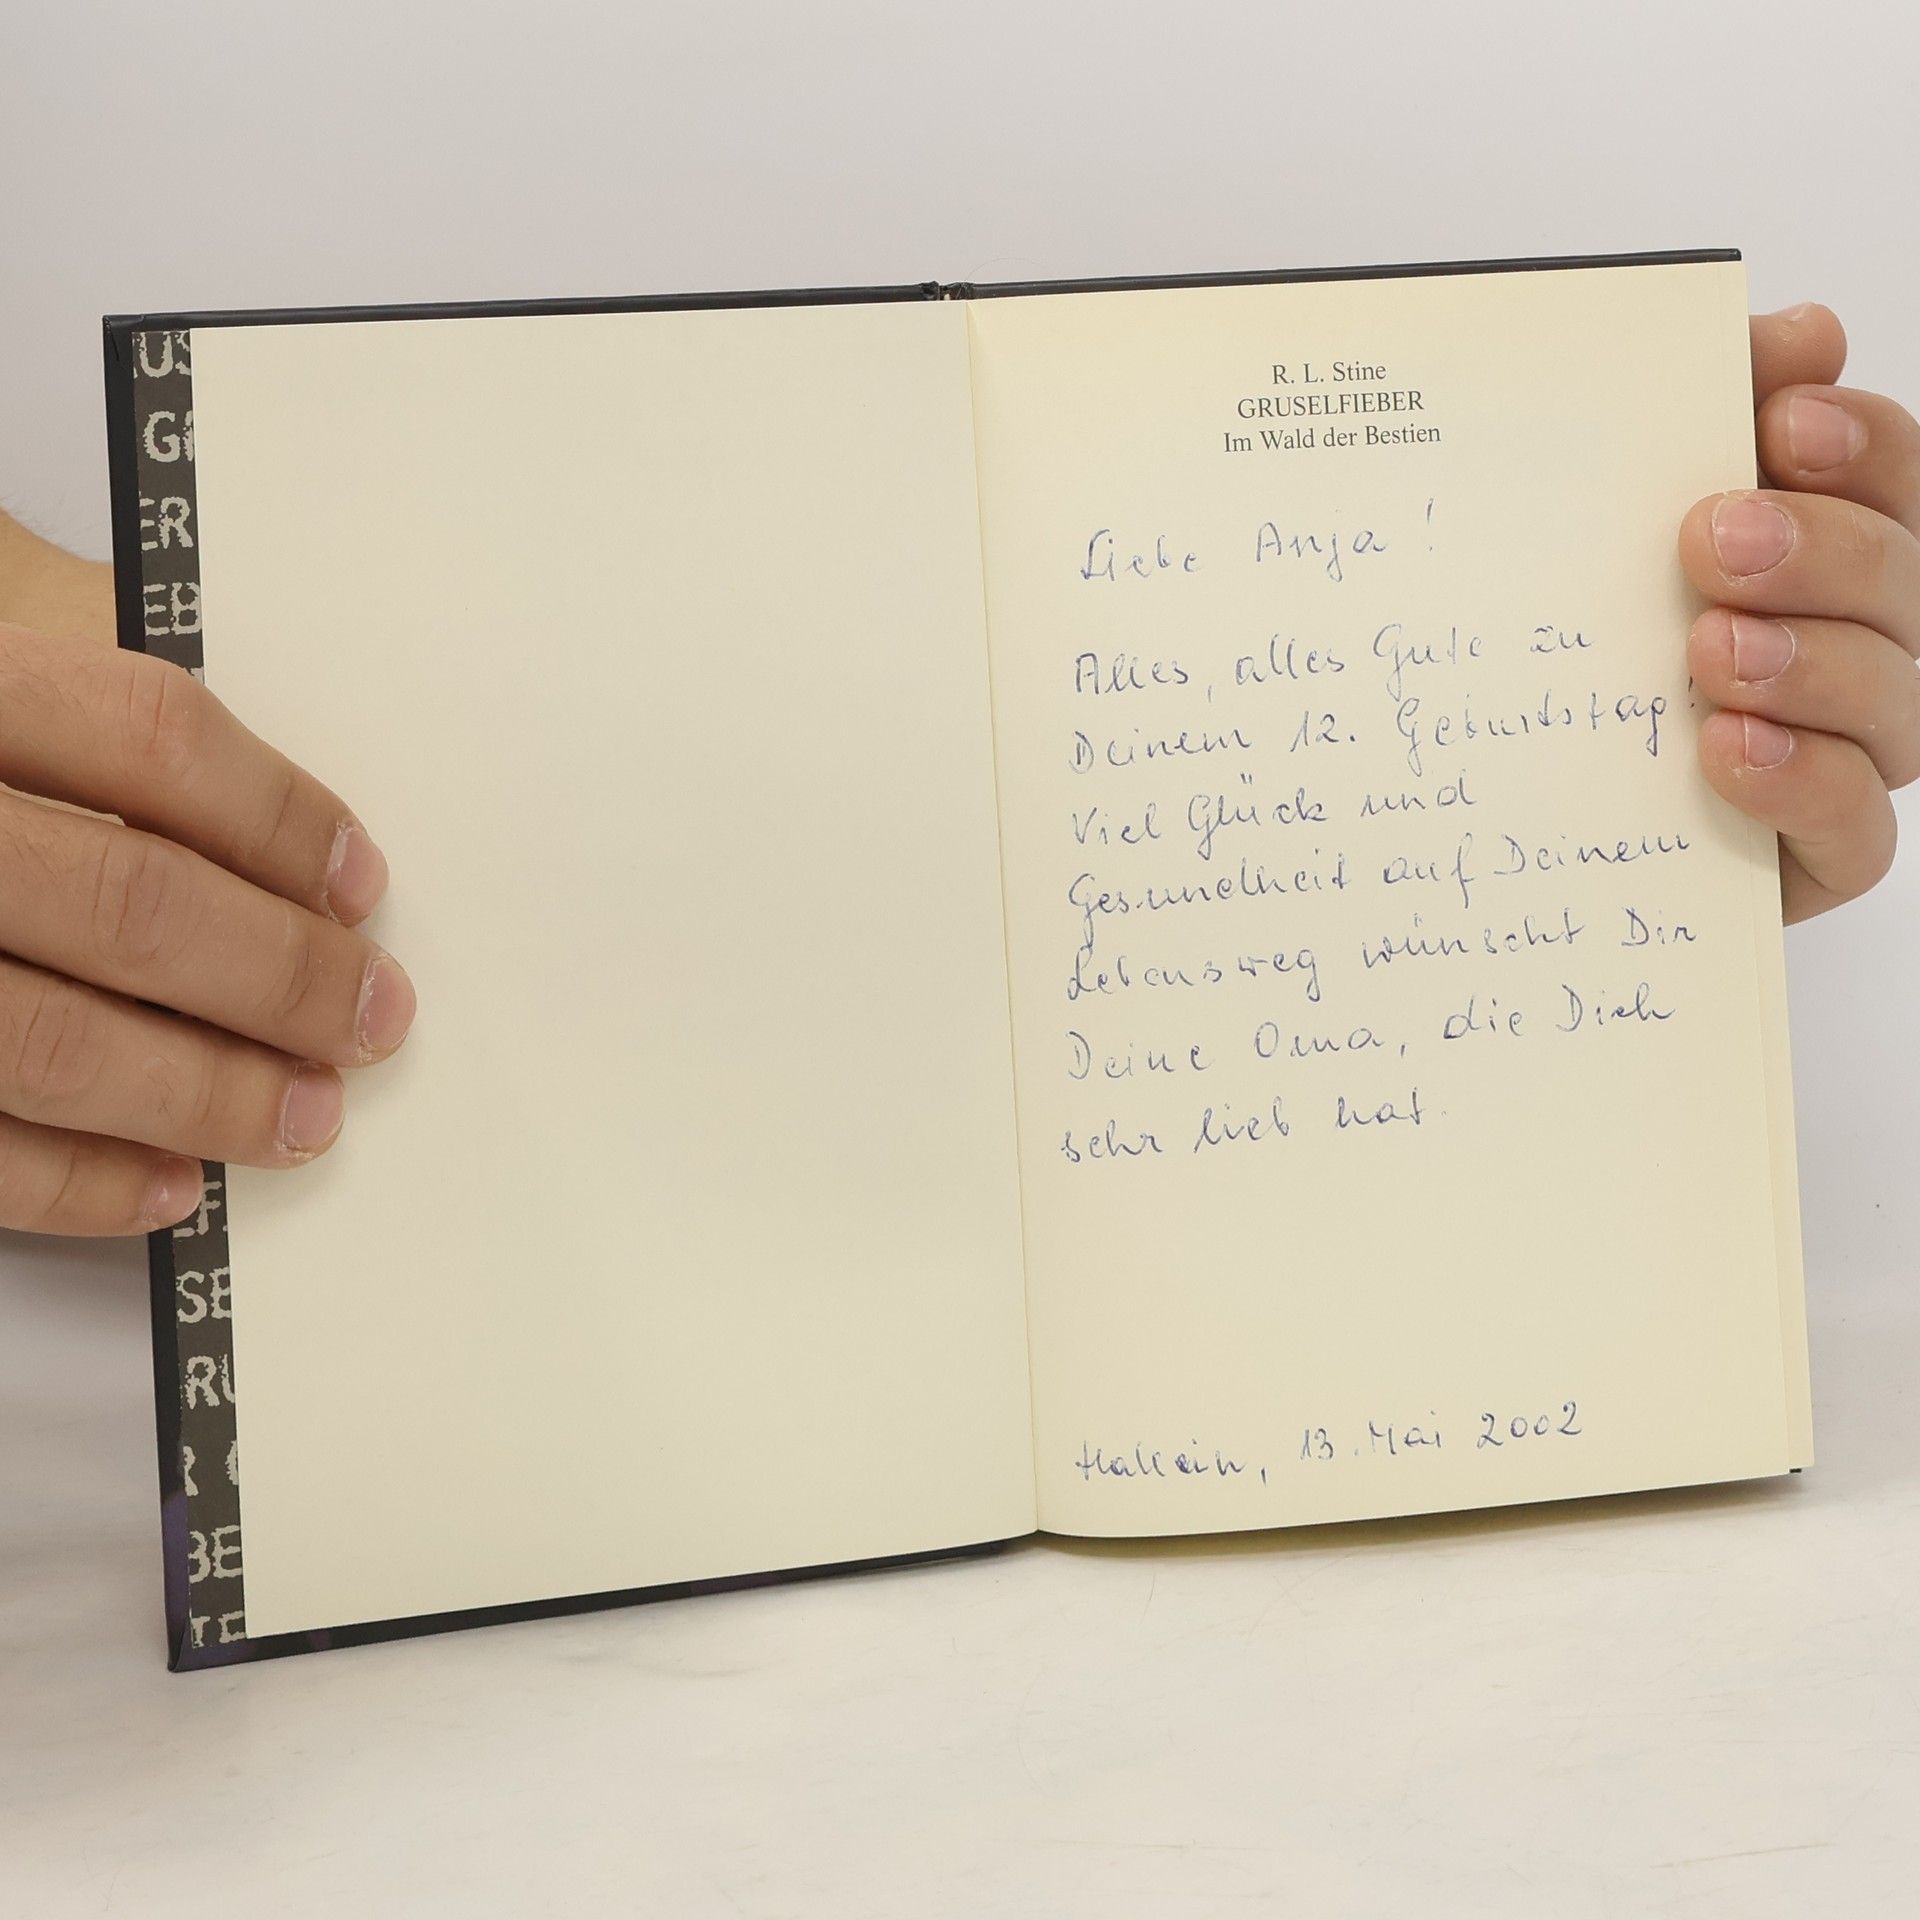 R. L. Stine
GRUSELFIEBER
Im Wald der Bestien
Liebe Anja !
Alles, alles Gute zu
Deinem 12. Geburtstag!
Viel Glück und
Gesundheit auf Deinem
Lebensweg wünscht Dir
Deine Oma, die Dich
sehr lieb hat.
Hallein, 13. Mai 2002